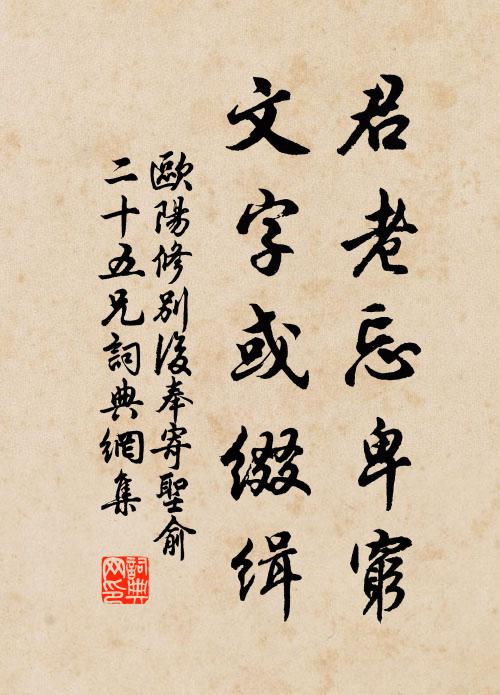 君老忘卑窮
文字或綴緝
歐陽修別後奉寄聖俞
二十五兄詞典網集
詞典
网印